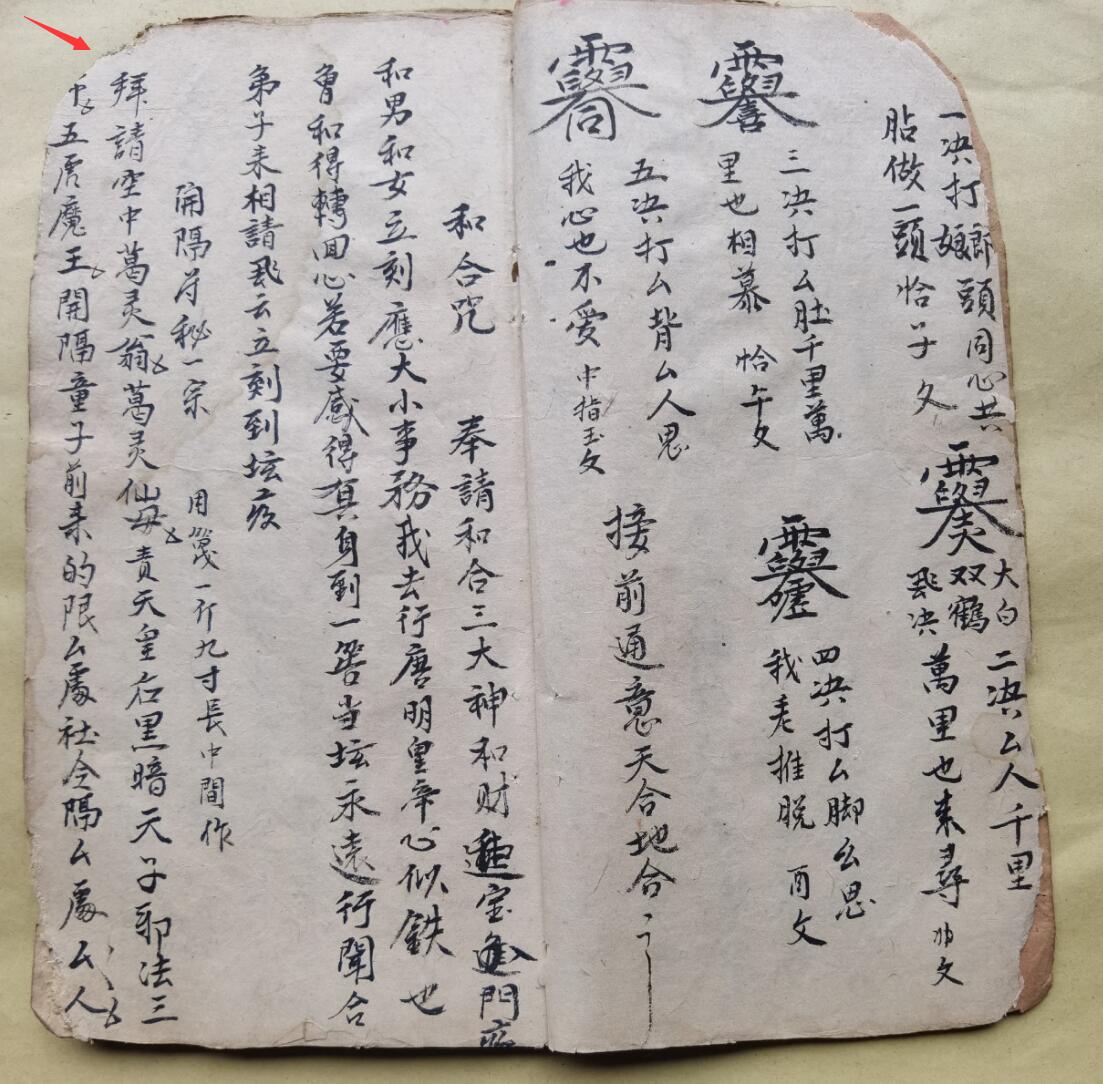 一决打郎頭同心共
娘
貼做一頭 恰子文
大白
双鶴
二决厶人千里
萬里也来尋
三决打厶肚千里萬
里也相慕 恰午文
四决打厶脚厶思
我走推脱 酉文
五决打厶背厶人思
我心也不愛 中指玉文
接前通意天合地合
和合咒 奉請和合三大神和財 宝 門
和男和女立刻應大小事務我去行唐明皇帝心似鉄也
會和得轉回心若要感得真身到一筶当坛永遠行聞合
弟子来相請 云立刻到坛
開隔符秘一宗 用篾一斤九寸長中間作
拜請空中葛灵翁葛灵仙母责天皇后黑暗天子邪法三
五唐魔王開隔童子前来的限厶處社令隔厶處厶人